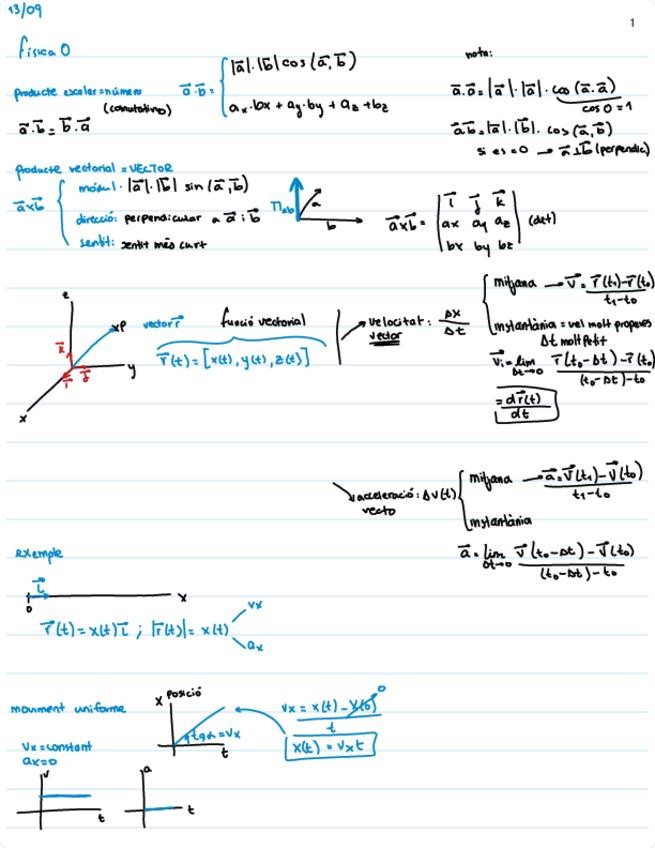 13/09
1
física 0
producte escalar = número
(conmutatiu)
a⃗·b⃗ = b⃗·a⃗
a⃗·b⃗ =
|a⃗|·|b⃗| cos (a⃗, b⃗)
ax·bx + ay·by + az + bz
nota:
a⃗·a⃗ = |a⃗|·|a⃗|·cos (a⃗.a⃗)
cos 0 = 1
a⃗b⃗ = |a⃗|·|b⃗|. cos (a⃗, b⃗)
si es = 0 → a⃗ ⊥ b⃗ (perpendic)
producte vectorial = VECTOR
a⃗xb⃗
módul · |a⃗|·|b⃗| sin (a⃗, b⃗)
direcció: perpendicular a a⃗ i b⃗
sentit: sentit més curt
a
b
a⃗xb⃗ =
i⃗ j⃗ k⃗
ax ay az
bx by bz
(det)
z
xp
k⃗
i⃗
j⃗
y
x
vector r⃗
funció vectorial
r⃗(t) = [x(t), y(t), z(t)]
velocitat: Δx / Δt
vector
mitjana → v⃗ = r⃗(t₁) - r⃗(t₀) / t₁ - t₀
instantània = vel molt properes
Δt molt petit
v⃗i = lim Δt→0 r⃗(t₀-Δt) - r⃗(t₀) / (t₀-Δt) - t₀
= dr⃗(t) / dt
acceleració: Δv(t)
vecto
mitjana → a⃗ = v⃗(t₁) - v⃗(t₀) / t₁ - t₀
instantània
a⃗ = lim Δt→0 v⃗(t₀-Δt) - v⃗(t₀) / (t₀-Δt) - t₀
exemple
i⃗
0
x
r⃗(t) = x(t) i⃗ ; |r⃗(t)| = x(t)
vx
ax
moviment uniforme
x posició
tg α = vx
t
vx = x(t) - x(0) / t
0
x(t) = vx t
vx = constant
ax = 0
v
t
a
t